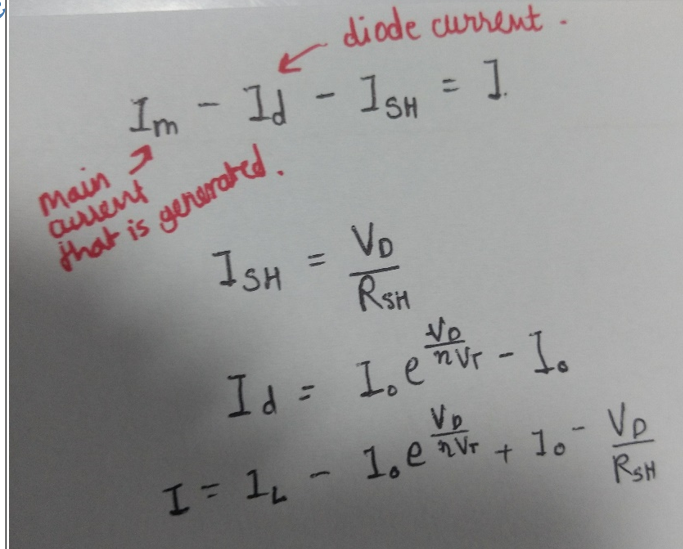 diode current.
I_m - I_d - I_SH = I
main
current
that is generated.
I_SH = V_D / R_SH
I_d = I_o e^(V_D / nV_T) - I_o
I = I_L - I_o e^(V_D / nV_T) + I_o - V_D / R_SH